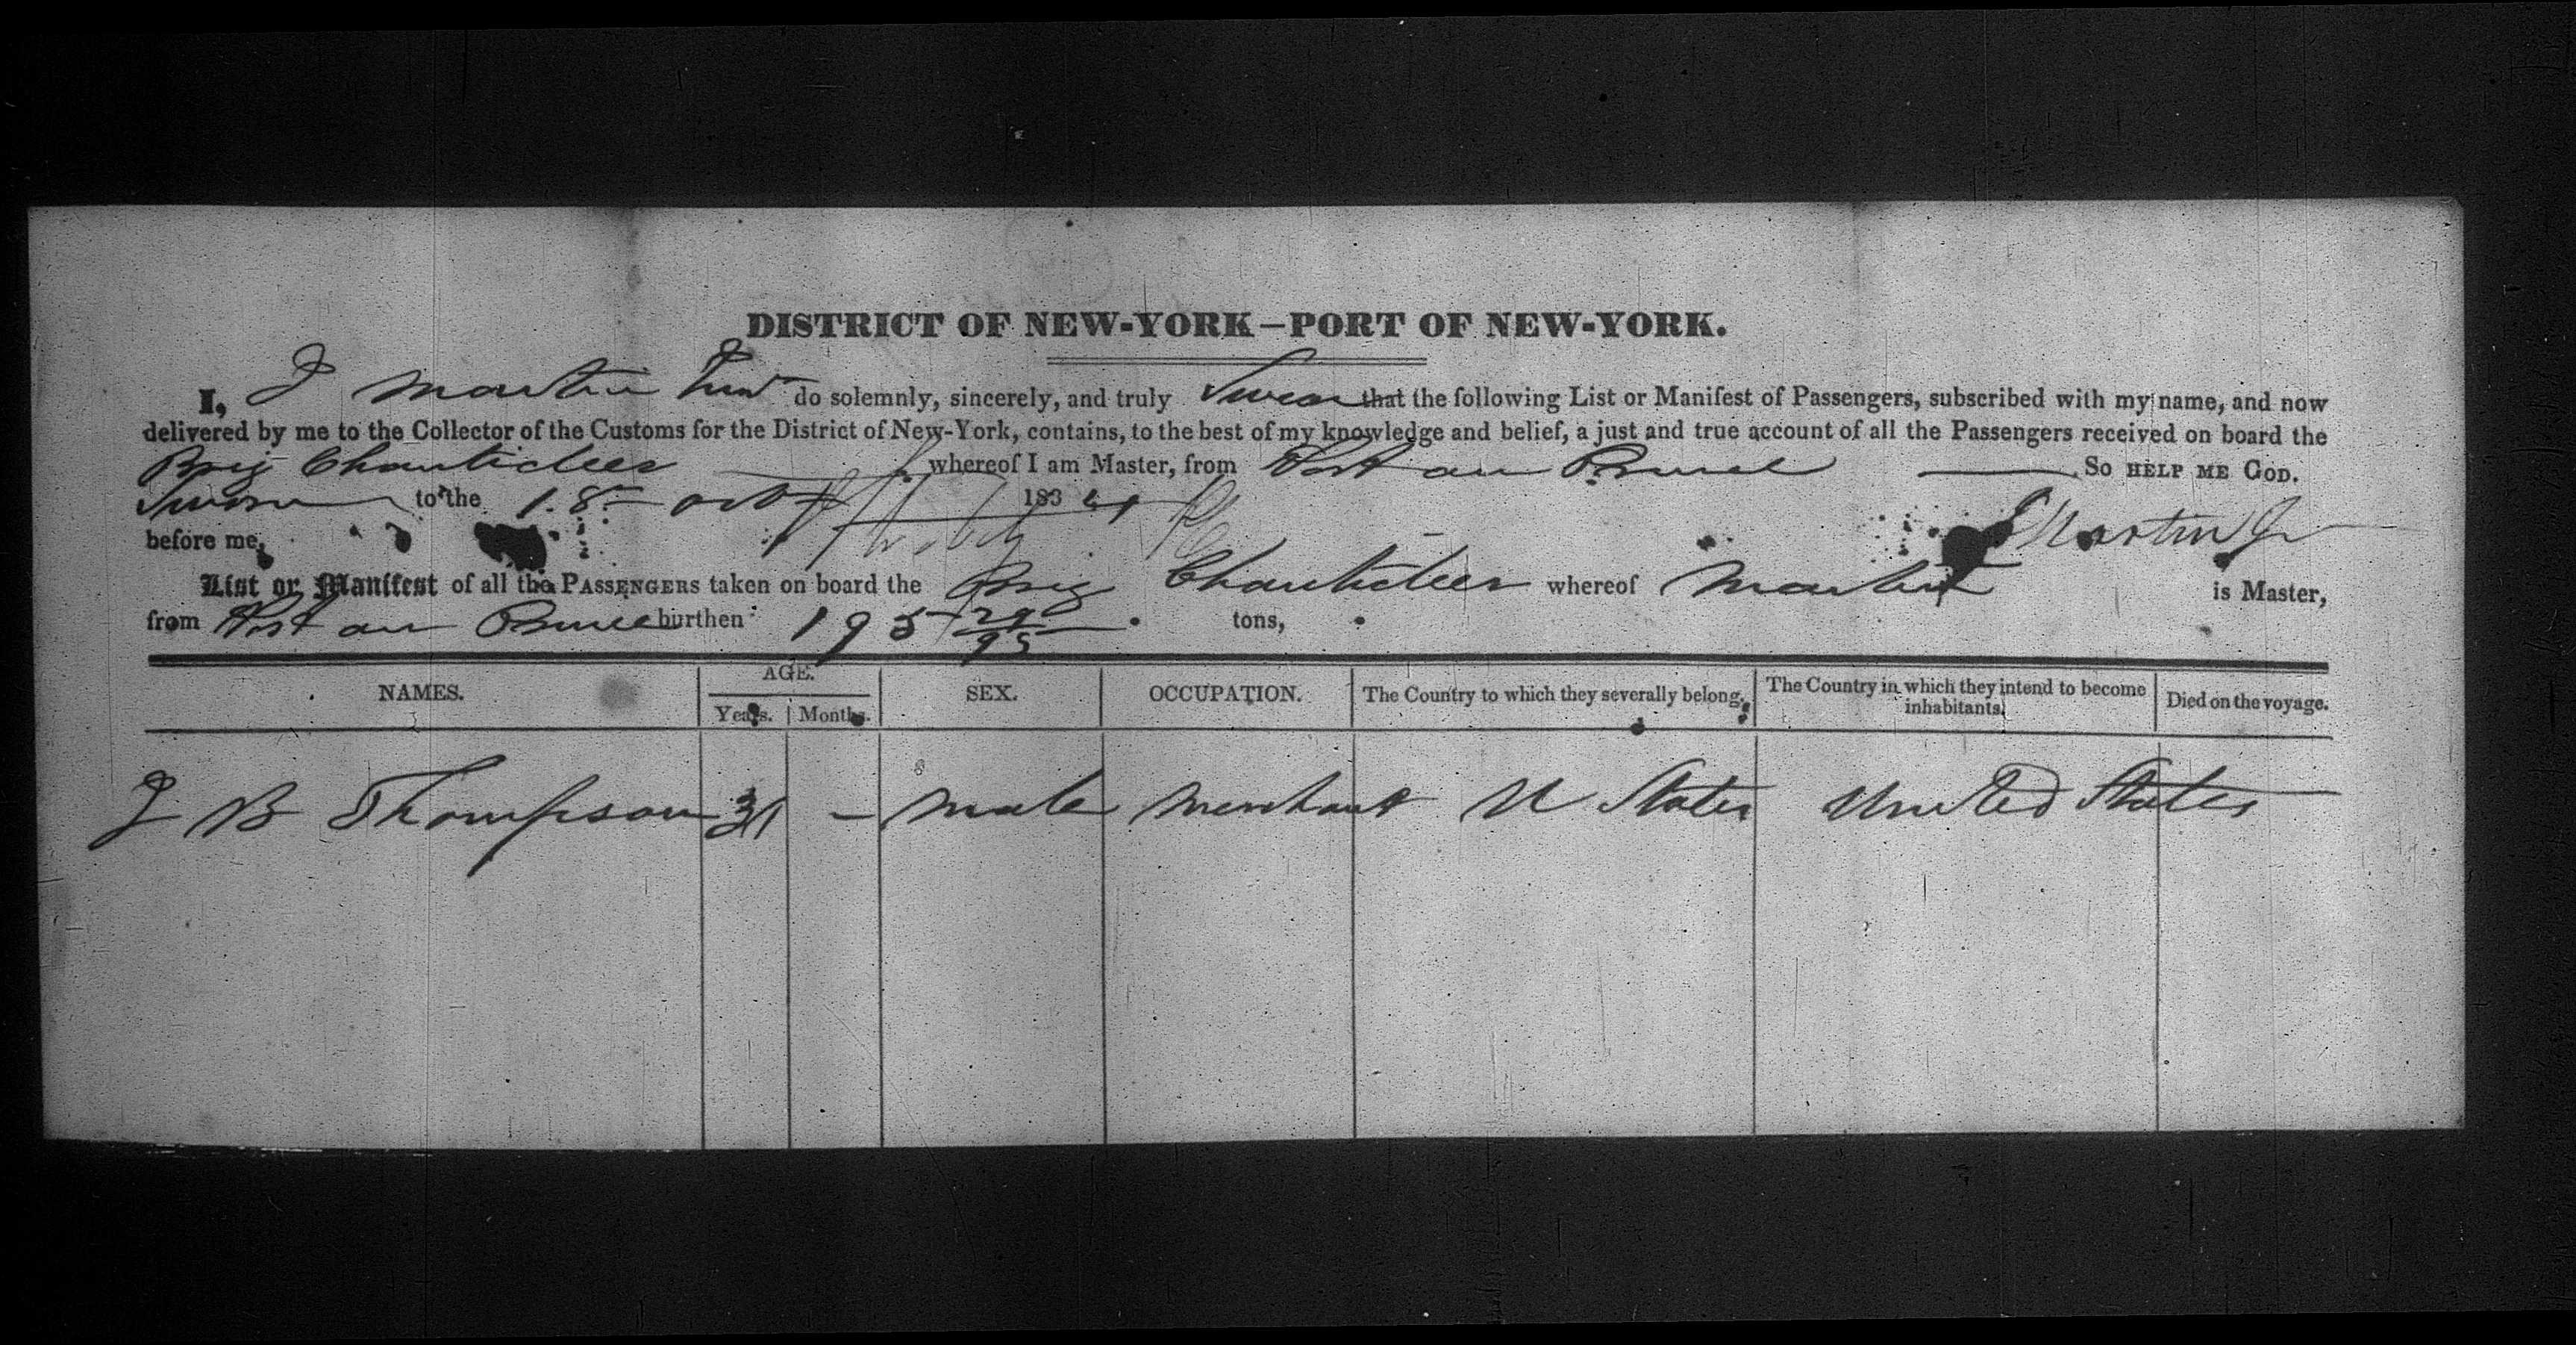 DISTRICT OF NEW-YORK—PORT OF NEW-YORK.
I, J Martin Junr do solemnly, sincerely, and truly Swear that the following List or Manifest of Passengers, subscribed with my name, and now
delivered by me to the Collector of the Customs for the District of New-York, contains, to the best of my knowledge and belief, a just and true account of all the Passengers received on board the
Brig Chanticleer whereof I am Master, from Port au Prince So HELP ME GOD.
Sworn to the 18 oct 1834
before me, J Martin Jr
List or Manifest of all the PASSENGERS taken on board the Brig Chanticleer whereof Martin is Master,
from Port au Prince burthen 195 29/95 tons,
NAMES. AGE. Years. Months. SEX. OCCUPATION. The Country to which they severally belong. The Country in which they intend to become inhabitants. Died on the voyage.
J B Thompson 31 – male merchant U States United States